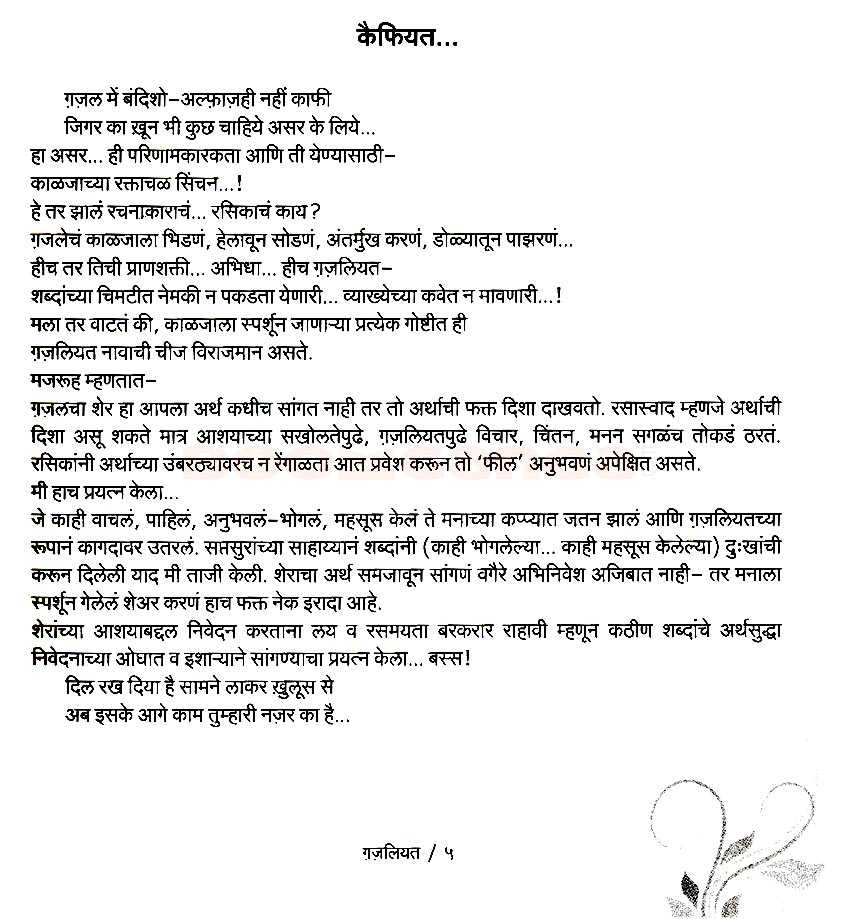 कैफियत...
ग़ज़ल में बंदिशो-अल्फ़ाज़ही नहीं काफी
जिगर का ख़ून भी कुछ चाहिये असर के लिये...
हा असर... ही परिणामकारकता आणि ती येण्यासाठी-
काळजाच्या रक्ताचळ सिंचन...!
हे तर झालं रचनाकाराचं... रसिकाचं काय?
ग़ज़लेचं काळजाला भिडणं, हेलावून सोडणं, अंतर्मुख करणं, डोळ्यातून पाझरणं...
हीच तर तिची प्राणशक्ती... अभिधा... हीच ग़ज़लियत-
शब्दांच्या चिमटीत नेमकी न पकडता येणारी... व्याख्येच्या कवेत न मावणारी...!
मला तर वाटतं की, काळजाला स्पर्शून जाणाऱ्या प्रत्येक गोष्टीत ही
ग़ज़लियत नावाची चीज विराजमान असते.
मजरूह म्हणतात-
ग़ज़लचा शेर हा आपला अर्थ कधीच सांगत नाही तर तो अर्थाची फक्त दिशा दाखवतो. रसास्वाद म्हणजे अर्थाची
दिशा असू शकते मात्र आशयाच्या सखोलतेपुढे, ग़ज़लियतपुढे विचार, चिंतन, मनन सगळंच तोकडं ठरतं.
रसिकांनी अर्थाच्या उंबरठ्यावरच न रेंगाळता आत प्रवेश करून तो ‘फील’ अनुभवणं अपेक्षित असते.
मी हाच प्रयत्न केला...
जे काही वाचलं, पाहिलं, अनुभवलं-भोगलं, महसूस केलं ते मनाच्या कप्प्यात जतन झालं आणि ग़ज़लियतच्या
रूपानं कागदावर उतरलं. सप्तसुरांच्या साहाय्यानं शब्दांनी (काही भोगलेल्या... काही महसूस केलेल्या) दुःखांची
करून दिलेली याद मी ताजी केली. शेराचा अर्थ समजावून सांगणं वगैरे अभिनिवेश अजिबात नाही- तर मनाला
स्पर्शून गेलेलं शेअर करणं हाच फक्त नेक इरादा आहे.
शेरांच्या आशयाबद्दल निवेदन करताना लय व रसमयता बरकरार राहावी म्हणून कठीण शब्दांचे अर्थसुद्धा
निवेदनाच्या ओघात व इशाऱ्याने सांगण्याचा प्रयत्न केला... बस्स!
दिल रख दिया है सामने लाकर ख़ुलूस से
अब इसके आगे काम तुम्हारी नज़र का है...
ग़ज़लियत / ५